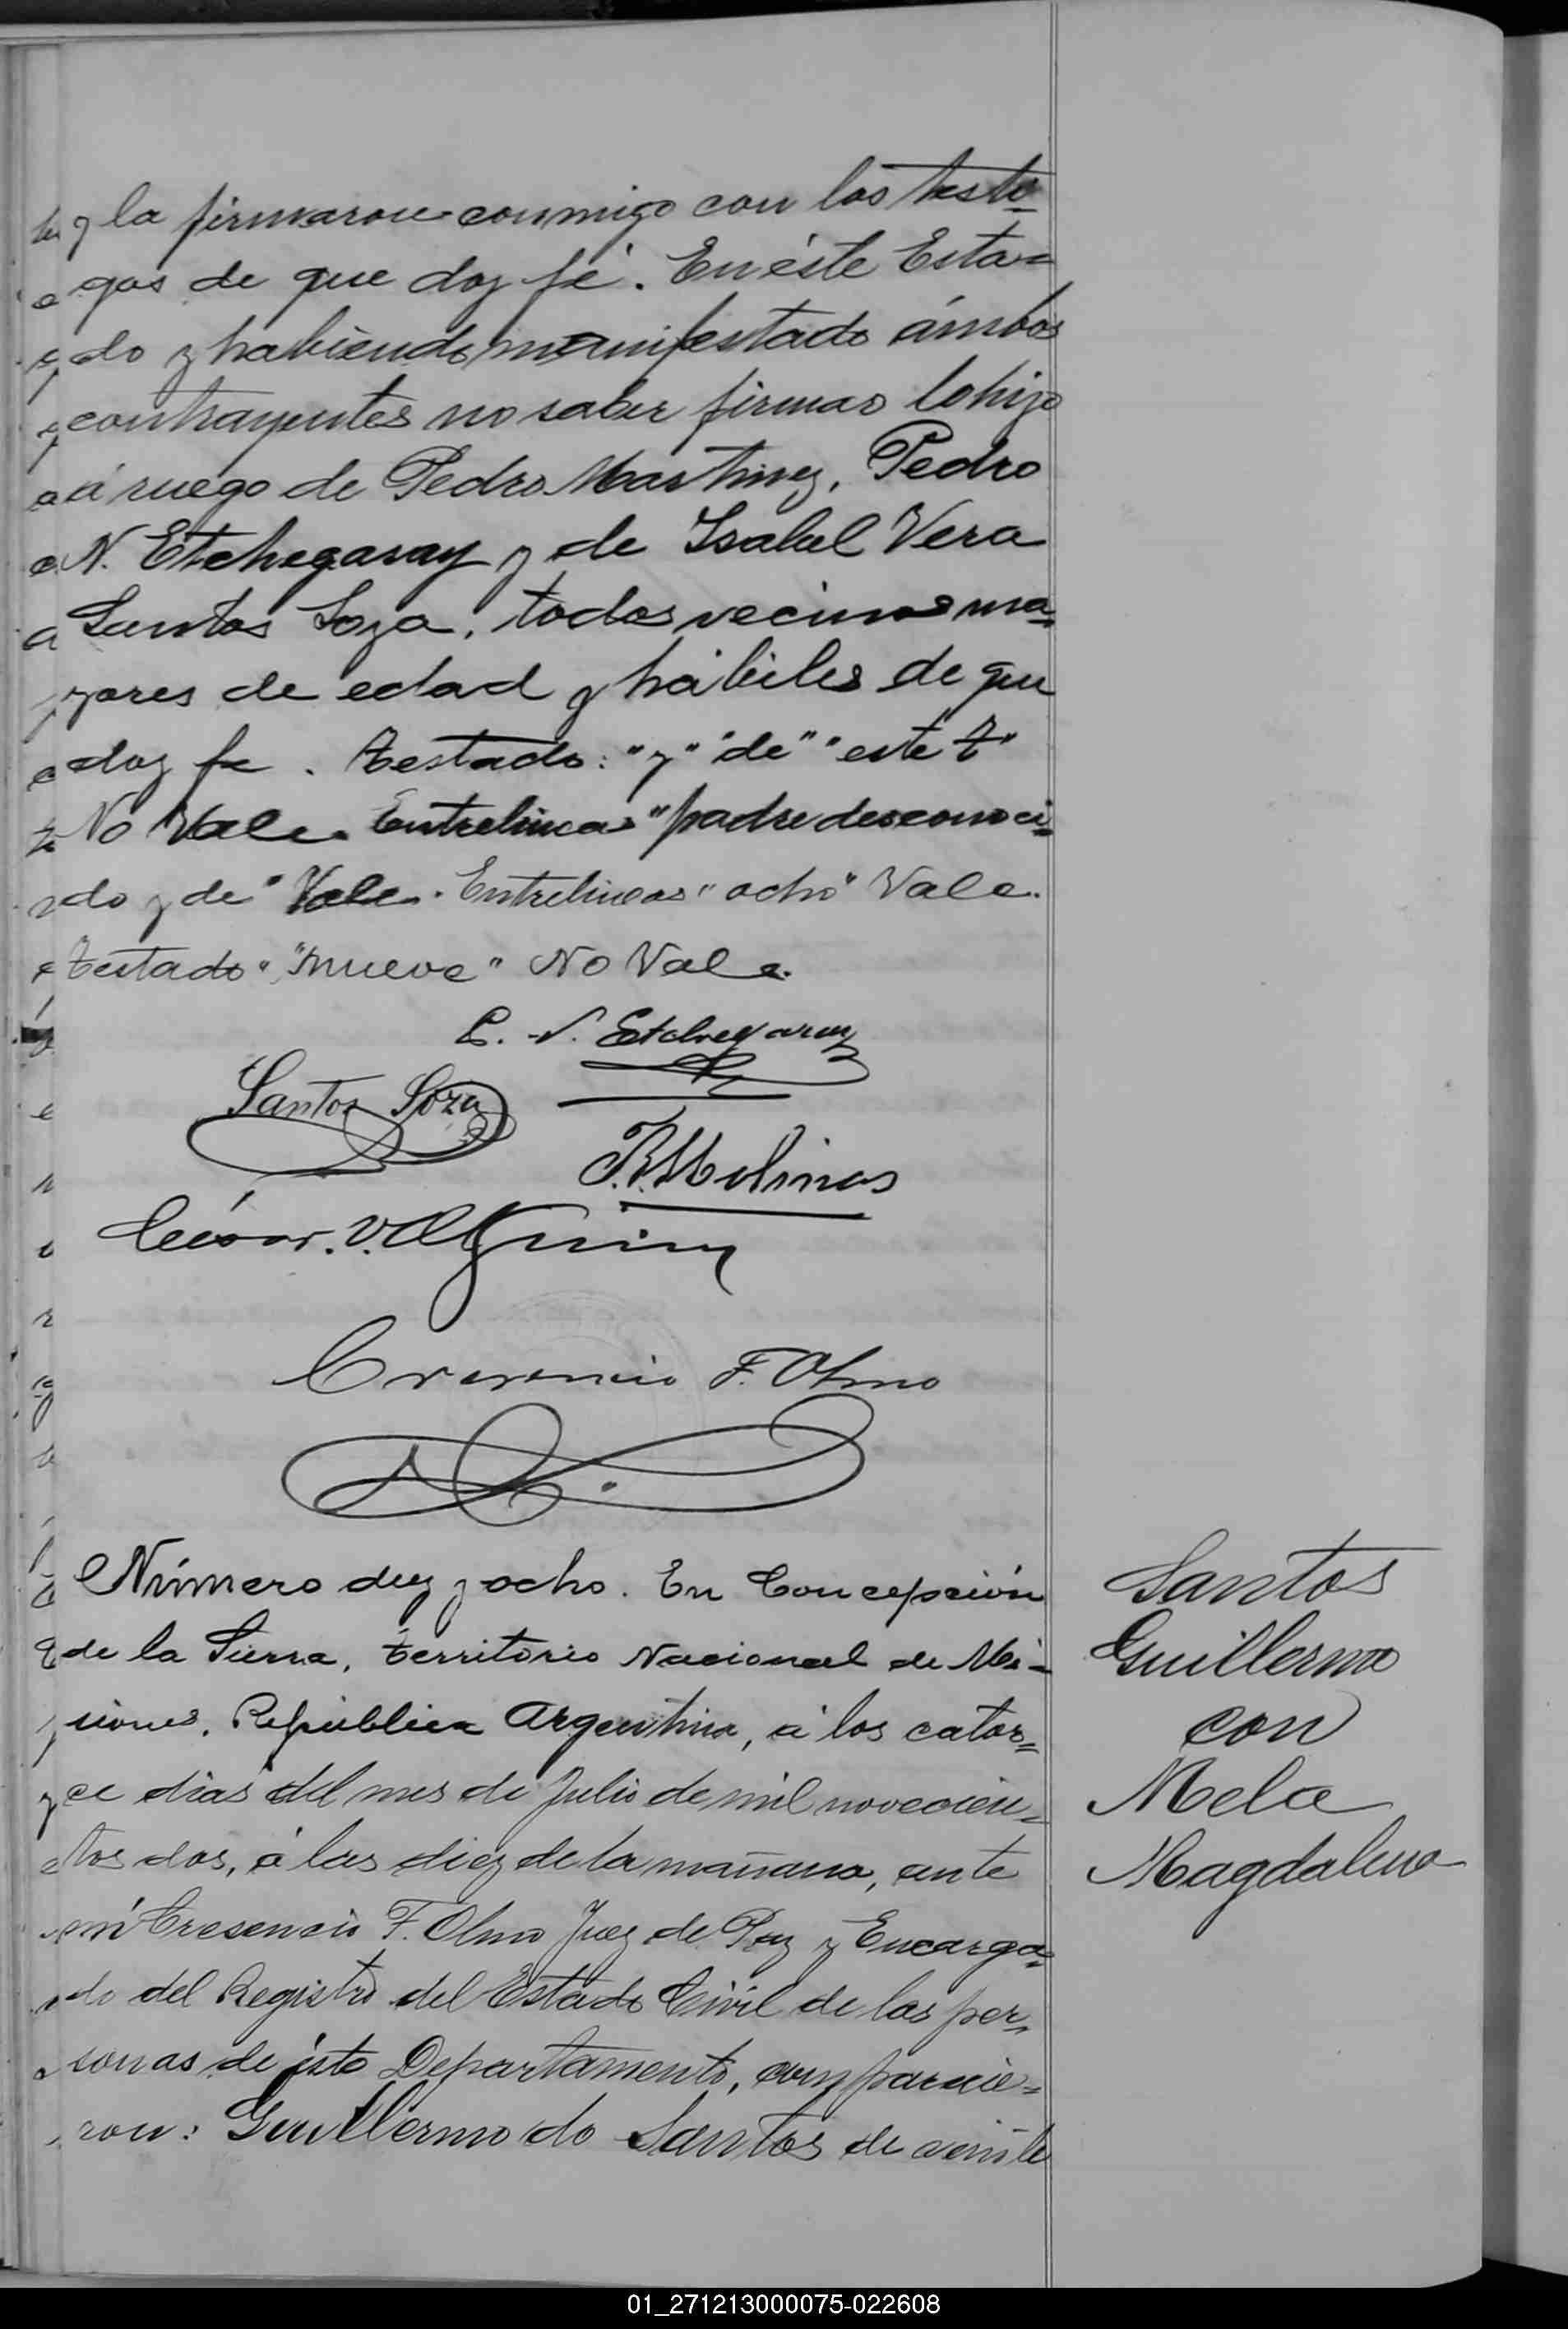 y la firmaron conmigo con los testi=
gos de que doy fé. En éste Esta=
do y habiendo manifestado ámbos
contrayentes no saber firmar lo hizo
á ruego de Pedro Martinez, Pedro
N. Etchegaray y de Isabel Vera
Santos Soza, todos vecinos ma=
yores de edad y hábiles de que
doy fe. Testado: "y" "de" "este t"
No Vale. Entrelineas "padre desconoci=
do y de" Vale. Entrelineas "ocho" Vale.
Testado "nueve" No Vale.
P. N. Etchegaray
Santos Soza
Molinas
César. V. Olguin
Cresencio F. Olmo
Número diez y ocho. En Concepción
de la Sierra, Territorio Nacional de Mi=
siones, República Argentina, á los cator=
ce dias del mes de Julio de mil novecien=
tos dos, á las diez de la mañana, ante
mi Cresencio F. Olmo Juez de Paz y Encarga=
do del Registro del Estado Civil de las per=
sonas de este Departamento, comparecie=
ron: Guillermo do Santos de veinte
Santos
Guillermo
con
Mela
Magdalena
01_271213000075-022608